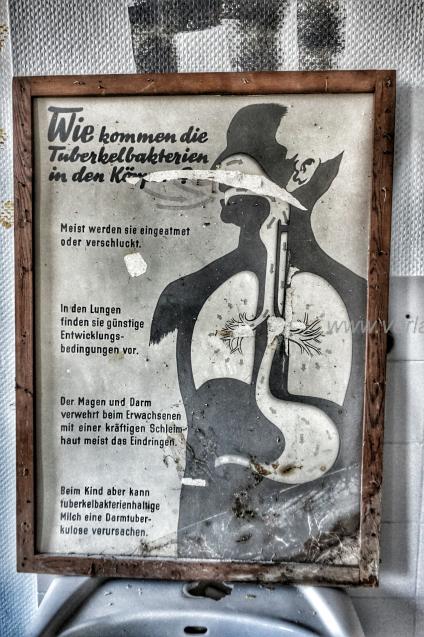 Wie kommen die
Tuberkelbakterien
in den
Meist werden sie eingeatmet
oder verschluckt.
In den Lungen
finden sie günstige
Entwicklungs-
bedingungen vor.
Der Magen und Darm
verwehrt beim Erwachsenen
mit einer kräftigen Schleim-
haut meist das Eindringen.
Beim Kind aber kann
tuberkelbakterienhaltige
Milch eine Darmtuber-
kulose verursachen.